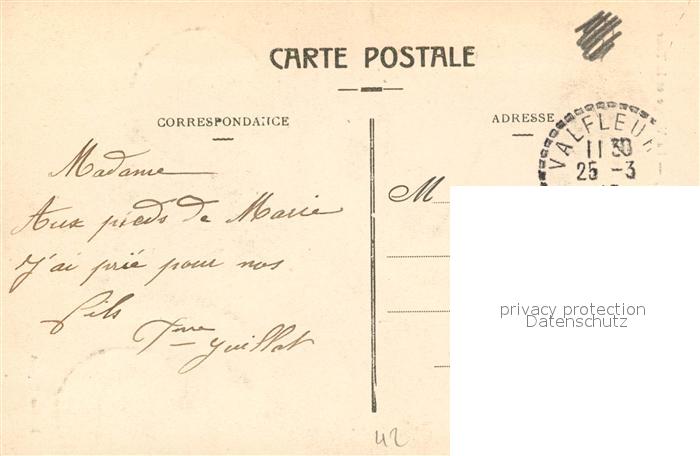 CARTE POSTALE
CORRESPONDANCE
ADRESSE
VALFLEUR
11 30
25 -3
Madame
M
Aux pieds de Marie
J'ai prié pour nos
fils
privacy protection
Datenschutz
42